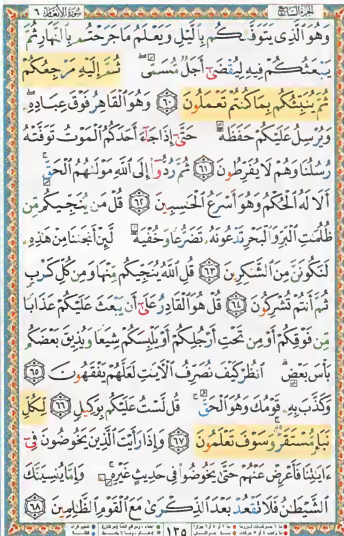 الجزء السابع سورة الأنعام ٦
وَهُوَ ٱلَّذِي يَتَوَفَّىٰكُم بِٱلَّيۡلِ وَيَعۡلَمُ مَا جَرَحۡتُم بِٱلنَّهَارِ ثُمَّ
يَبۡعَثُكُمۡ فِيهِ لِيُقۡضَىٰٓ أَجَلٞ مُّسَمّٗىۖ ثُمَّ إِلَيۡهِ مَرۡجِعُكُمۡ
ثُمَّ يُنَبِّئُكُم بِمَا كُنتُمۡ تَعۡمَلُونَ ٦٠ وَهُوَ ٱلۡقَاهِرُ فَوۡقَ عِبَادِهِۦۖ
وَيُرۡسِلُ عَلَيۡكُمۡ حَفَظَةً حَتَّىٰٓ إِذَا جَآءَ أَحَدَكُمُ ٱلۡمَوۡتُ تَوَفَّتۡهُ
رُسُلُنَا وَهُمۡ لَا يُفَرِّطُونَ ٦١ ثُمَّ رُدُّوٓاْ إِلَى ٱللَّهِ مَوۡلَىٰهُمُ ٱلۡحَقِّۚ
أَلَا لَهُ ٱلۡحُكۡمُ وَهُوَ أَسۡرَعُ ٱلۡحَٰسِبِينَ ٦٢ قُلۡ مَن يُنَجِّيكُم مِّن
ظُلُمَٰتِ ٱلۡبَرِّ وَٱلۡبَحۡرِ تَدۡعُونَهُۥ تَضَرُّعٗا وَخُفۡيَةٗ لَّئِنۡ أَنجَىٰنَا مِنۡ هَٰذِهِۦ
لَنَكُونَنَّ مِنَ ٱلشَّٰكِرِينَ ٦٣ قُلِ ٱللَّهُ يُنَجِّيكُم مِّنۡهَا وَمِن كُلِّ كَرۡبٖ
ثُمَّ أَنتُمۡ تُشۡرِكُونَ ٦٤ قُلۡ هُوَ ٱلۡقَادِرُ عَلَىٰٓ أَن يَبۡعَثَ عَلَيۡكُمۡ عَذَابٗا
مِّن فَوۡقِكُمۡ أَوۡ مِن تَحۡتِ أَرۡجُلِكُمۡ أَوۡ يَلۡبِسَكُمۡ شِيَعٗا وَيُذِيقَ بَعۡضَكُم
بَأۡسَ بَعۡضٍۗ ٱنظُرۡ كَيۡفَ نُصَرِّفُ ٱلۡأٓيَٰتِ لَعَلَّهُمۡ يَفۡقَهُونَ ٦٥
وَكَذَّبَ بِهِۦ قَوۡمُكَ وَهُوَ ٱلۡحَقُّۚ قُل لَّسۡتُ عَلَيۡكُم بِوَكِيلٖ ٦٦ لِّكُلِّ
نَبَإٖ مُّسۡتَقَرّٞۚ وَسَوۡفَ تَعۡلَمُونَ ٦٧ وَإِذَا رَأَيۡتَ ٱلَّذِينَ يَخُوضُونَ فِيٓ
ءَايَٰتِنَا فَأَعۡرِضۡ عَنۡهُمۡ حَتَّىٰ يَخُوضُواْ فِي حَدِيثٍ غَيۡرِهِۦۚ وَإِمَّا يُنسِيَنَّكَ
ٱلشَّيۡطَٰنُ فَلَا تَقۡعُدۡ بَعۡدَ ٱلذِّكۡرَىٰ مَعَ ٱلۡقَوۡمِ ٱلظَّٰلِمِينَ ٦٨
١٣٥